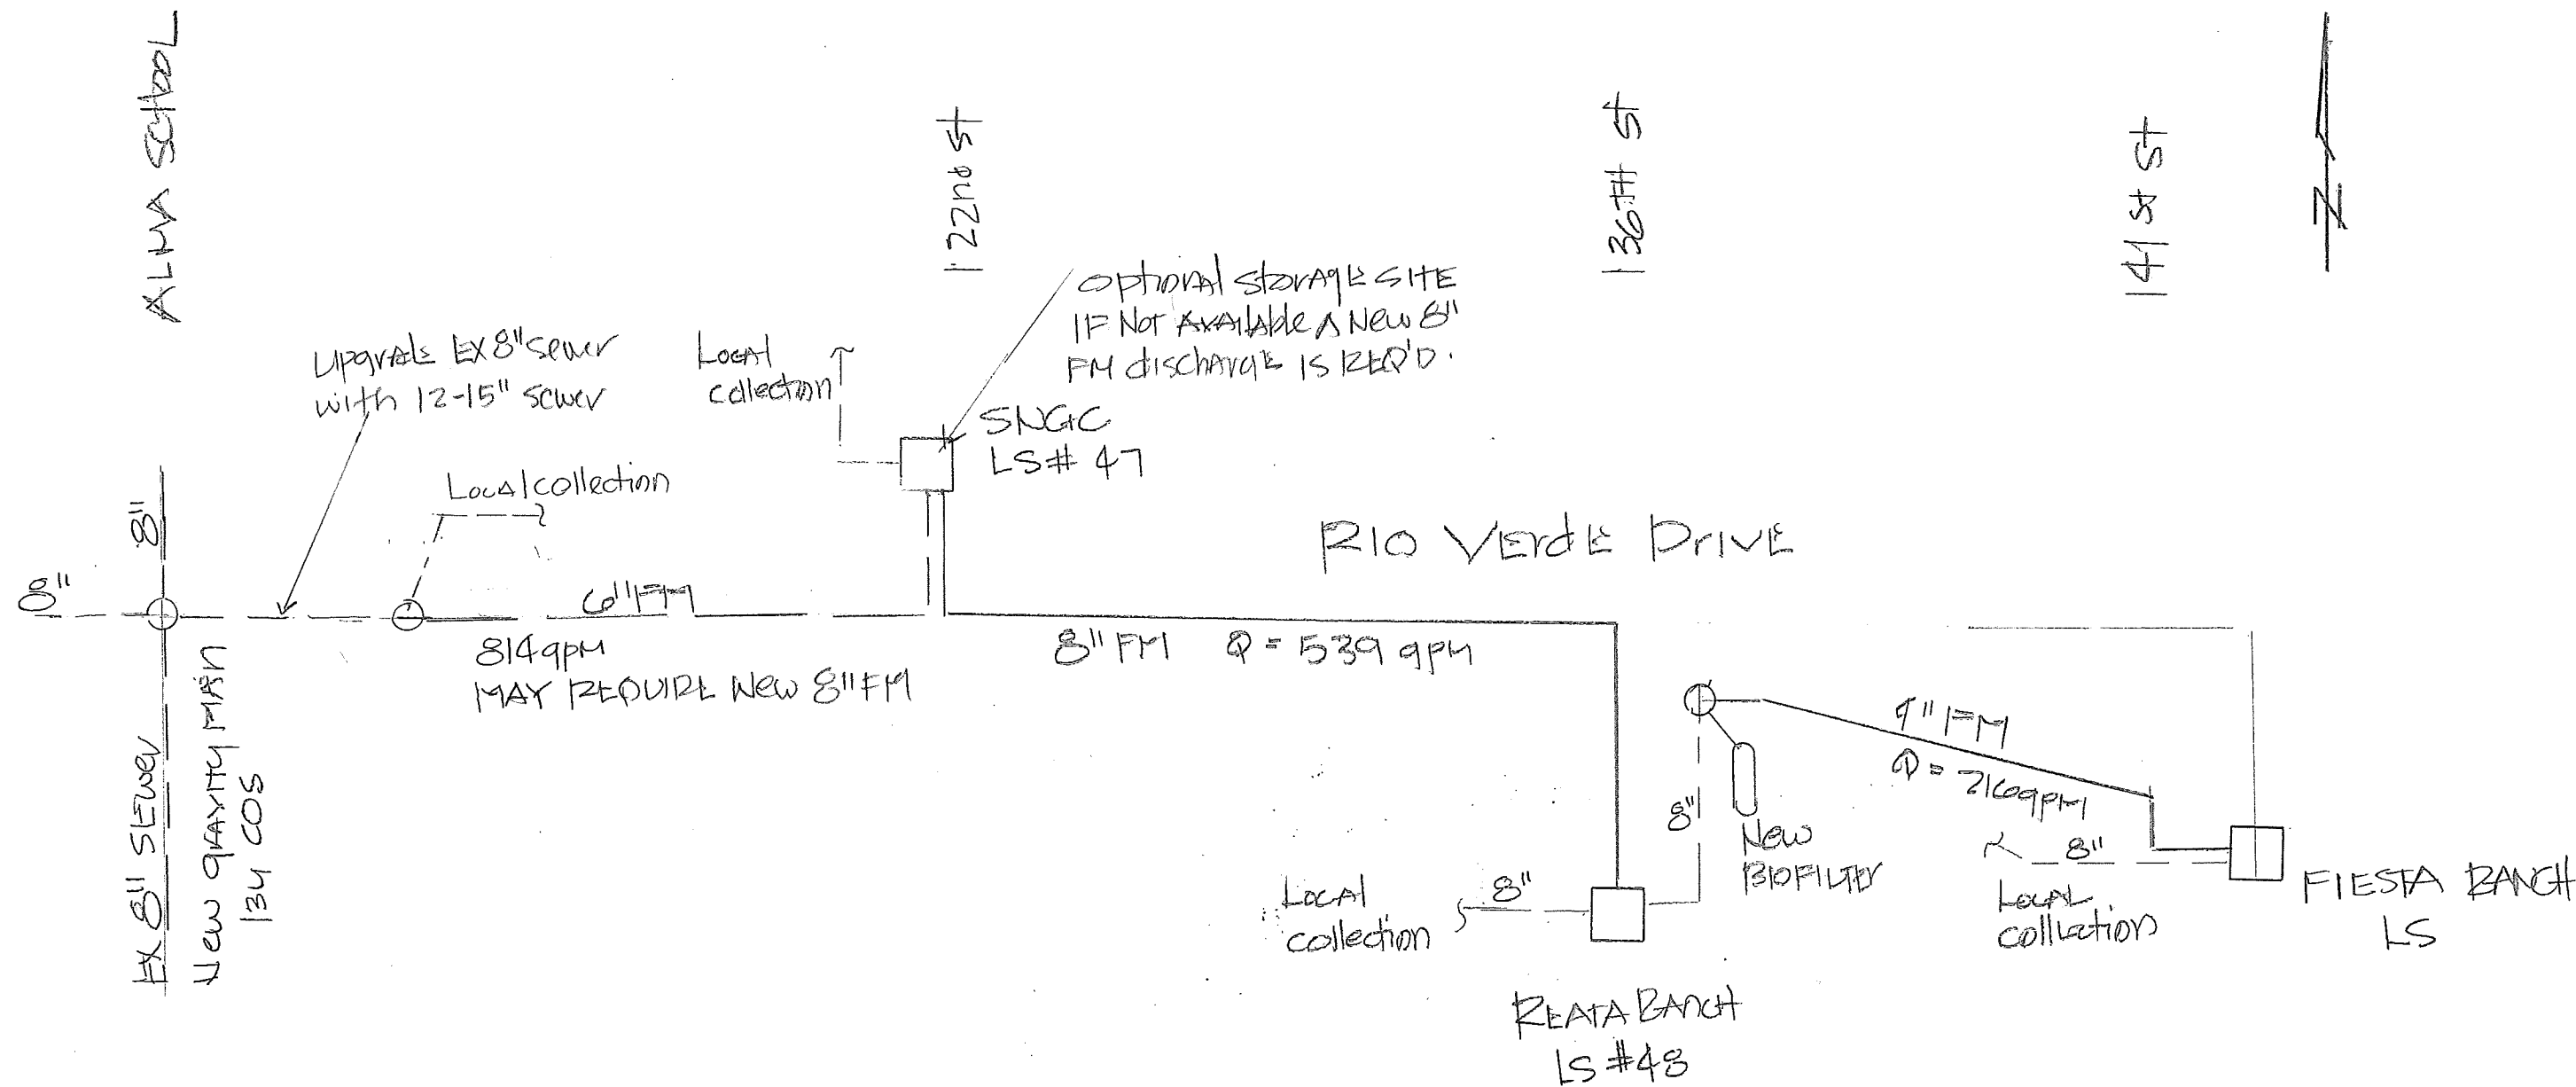 ALMA SCHOOL
122nd St
136TH St
141 St St
N
Optional Storage SITE
IF Not Available A New 8"
FM discharge IS REQ'D.
Upgrade EX 8" sewer
with 12-15" sewer
Local
collection
SNGC
LS# 47
Local collection
8"
8"
6" FM
RIO VErdE DrIVE
814 gpm
MAY REQUIRE New 8" FM
8" FM Q = 539 gpm
EX 8" SEwer
New gravity MAIN
BY COS
FM
Q = 216 gpm
8"
New
BIOFILTEr
8"
Local
collection
FIESTA RANCH
LS
Local
collection
8"
REATA RANCH
LS #48